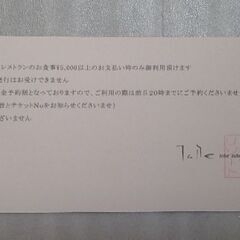 レストランのお食事¥5,000以上のお支払い時のみ御利用頂けます
発行はお受けできません
金予約制となっておりますので、ご利用の際は前日20時までにご予約くださいませ
とチケットNoをお知らせくださいませ）
ざいません